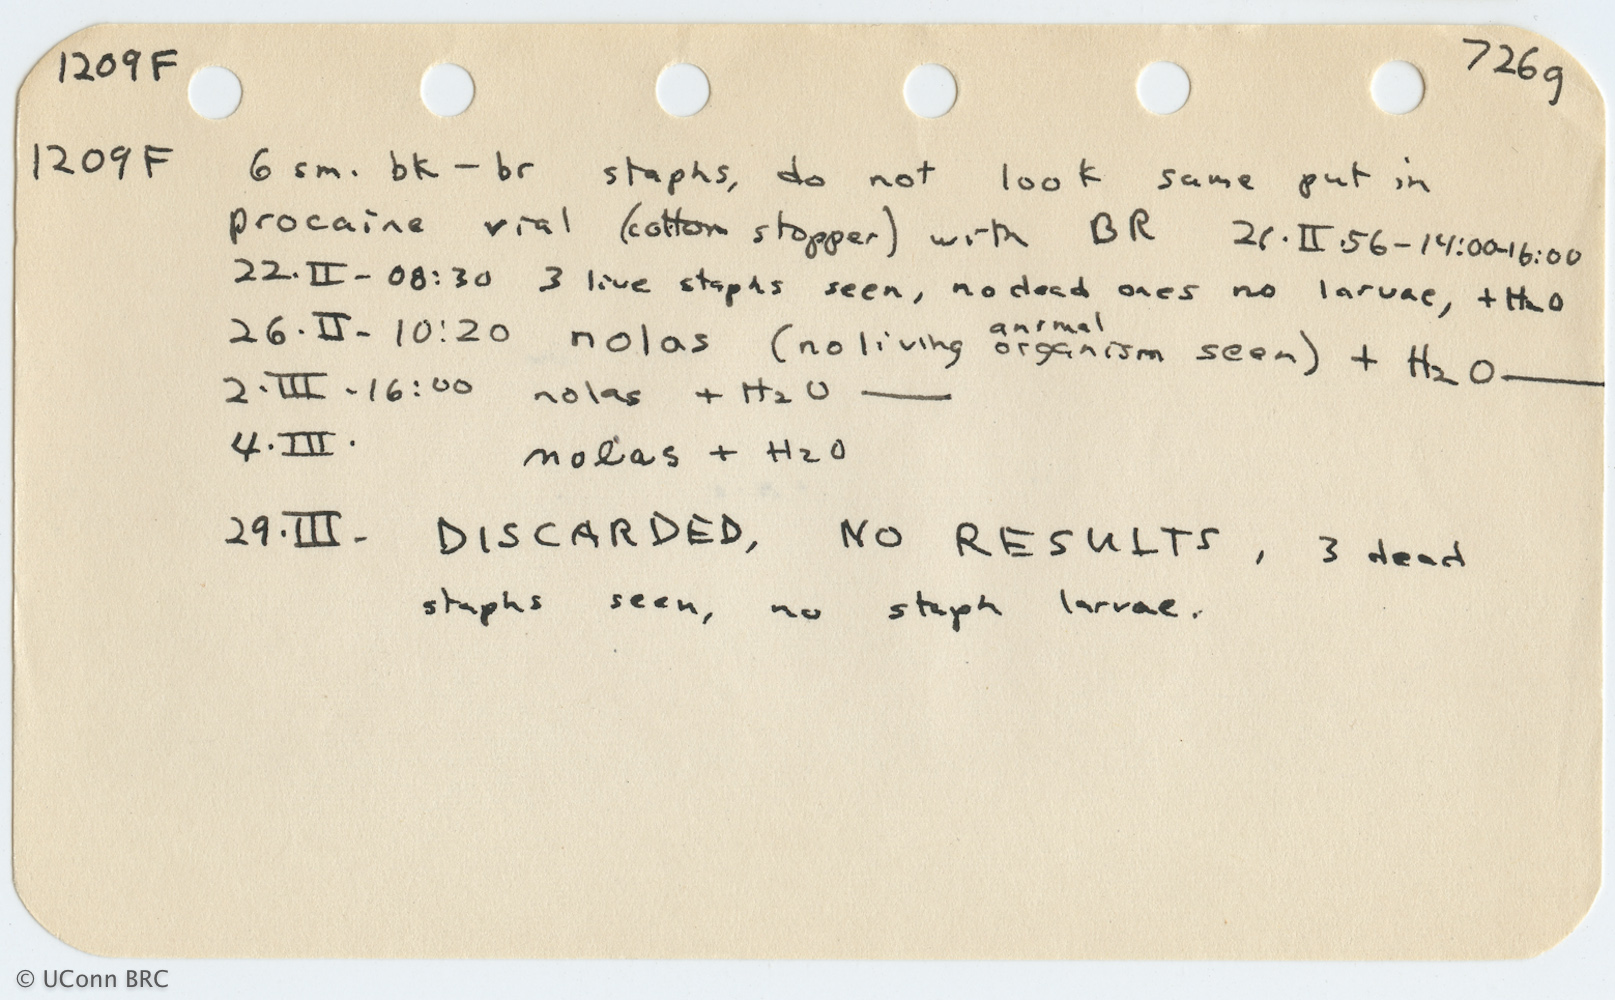 1209F 726g
1209F 6 sm. bk - br staphs, do not look same put in
procaine vial (cotton stopper) with BR 21.II.56-14:00-16:00
22.II- 08:30 3 live staphs seen, no dead ones no larvae, + H2O
26.II- 10:20 nolas (no living animal organism seen) + H2O —
2.III.-16:00 nolas + H2O —
4.III. nolas + H2O
29.III- DISCARDED, NO RESULTS, 3 dead
staphs seen, no staph larvae.
© UConn BRC